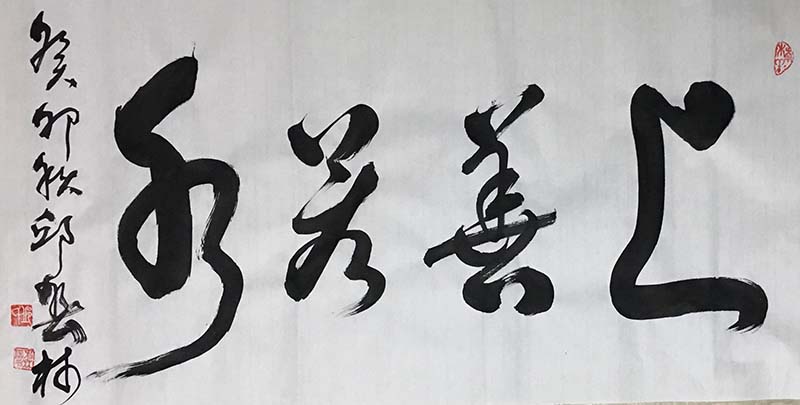 上善若水
癸卯秋邱
林